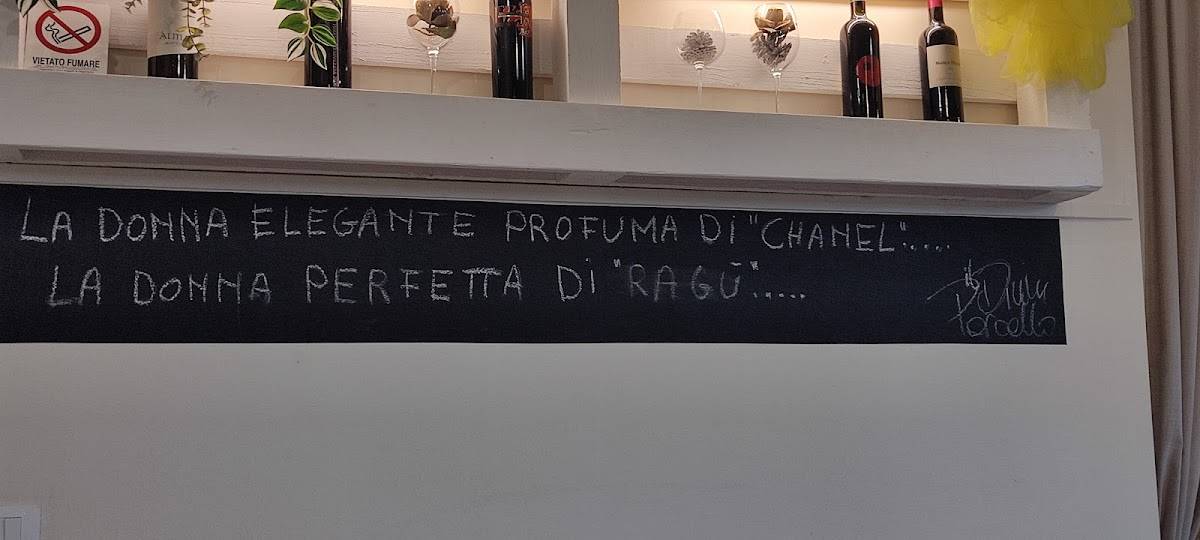 VIETATO FUMARE
LA DONNA ELEGANTE PROFUMA Di "CHANEL".....
LA DONNA PERFETTA Di "RAGÙ".....
il Divin
Porcello